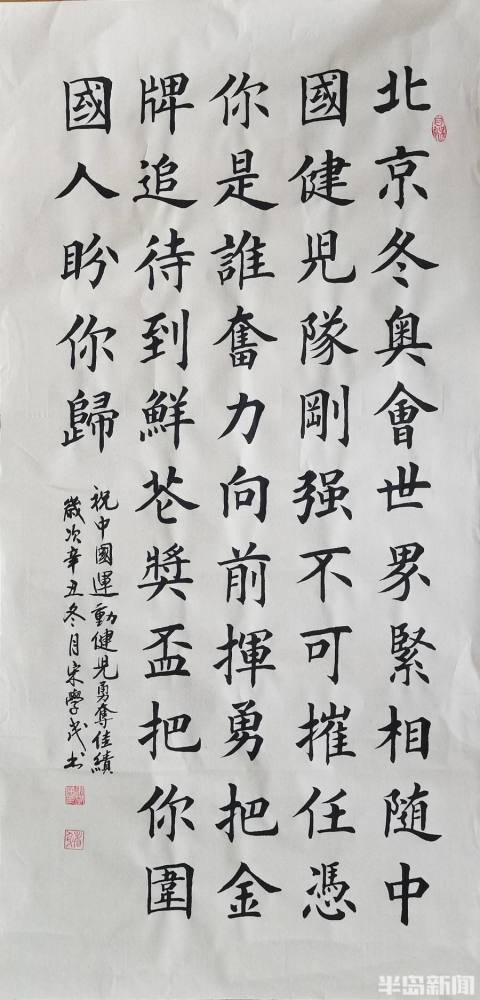 北京冬奧會世界緊相随中
國健児隊剛强不可摧任憑
你是誰奮力向前揮勇把金
牌追待到鮮花獎盃把你圍
國人盼你歸
祝中國運動健児勇奪佳績
歲次辛丑冬月宋學茂书
半岛新闻